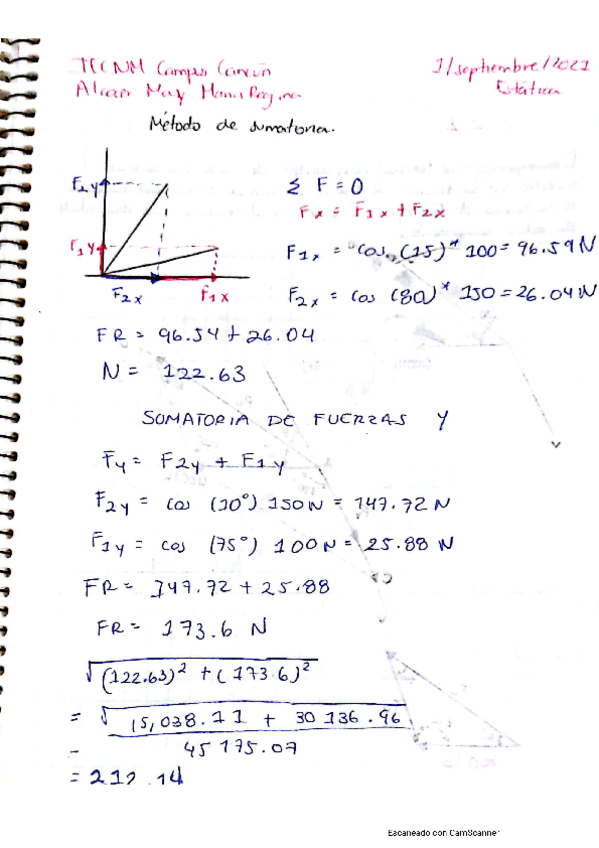 TECNM Campus Cancún
1/septiembre/2021
Estática
Método de sumatoria.
F2y
F1y
F2x
F1x
Σ F = 0
Fx = F1x + F2x
F1x = cos (15) * 100 = 96.59 N
F2x = cos (80) * 150 = 26.04 N
FR = 96.59 + 26.04
N = 122.63
SUMATORIA DE FUERZAS Y
Fy = F2y + F1y
F2y = cos (10°) 150N = 147.72 N
F1y = cos (75°) 100N = 25.88 N
FR = 147.72 + 25.88
FR = 173.6 N
√(122.63)² + (173.6)²
= √15,038.11 + 30136.96
- 45175.07
= 212.14
Escaneado con CamScanner